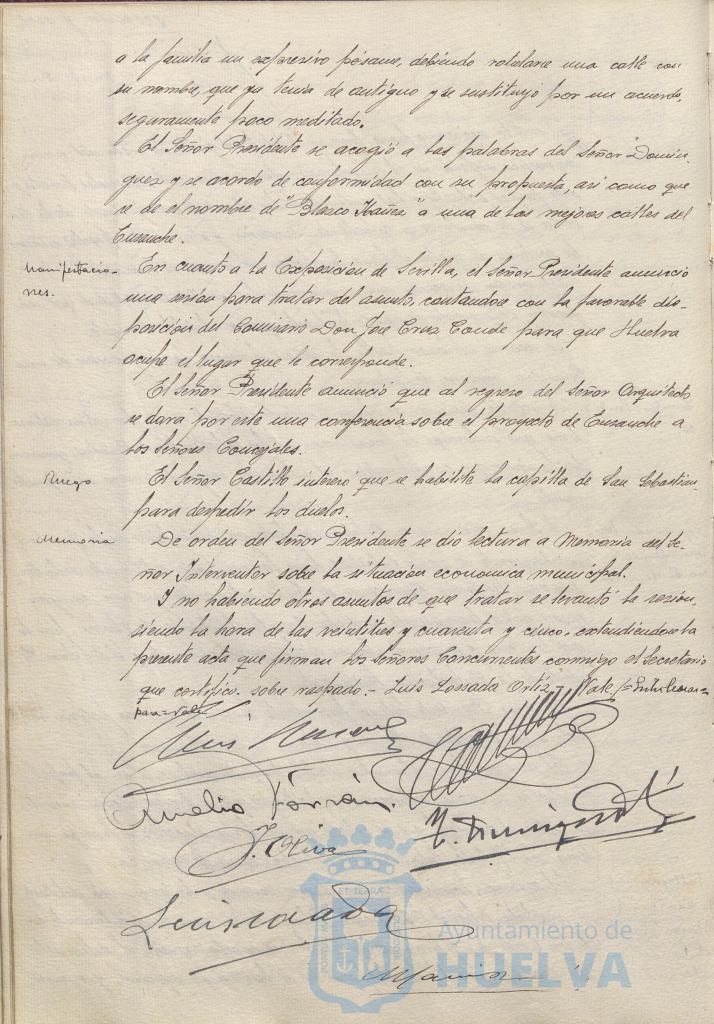 a la familia un expresivo pésame, debiendo rotularse una calle con
su nombre, que ya tenia de antiguo y se sustituyó por un acuerdo,
seguramente poco meditado.
El Señor Presidente se acogió a las palabras del Señor Domin-
guez y se acordo de conformidad con su propuesta, asi como que
se de el nombre de "Blasco Ibañez" a una de las mejores calles del
Ensanche.
Manifestacio-
nes.
En cuanto a la Exposición de Sevilla, el Señor Presidente anunció
una sesion para tratar del asunto, contandose con la favorable dis-
posición del Comisario Don Jose Cruz Conde para que Huelva
ocupe el lugar que le corresponde.
El Señor Presidente anunció que al regreso del Señor Arquitecto
se dará por este una conferencia sobre el proyecto de Ensanche a
los Señores Concejales.
Ruego
El Señor Castillo interesó que se habilite la capilla de San Sebastian
para despedir los duelos.
Memoria
De orden del Señor Presidente se dio lectura a Memoria del Se-
ñor Interventor sobre la situacion economica municipal.
Y no habiendo otros asuntos de que tratar se levantó la sesion,
siendo la hora de las veintitres y cuarenta y cinco, extendiendose la
presente acta que firman los Señores Concurrentes conmigo el Secretario
que certifico. sobre raspado.- Luis Lossada Ortiz- Vale
para=vale
J. Oliva
AYUNTAMIENTO DE
HUELVA